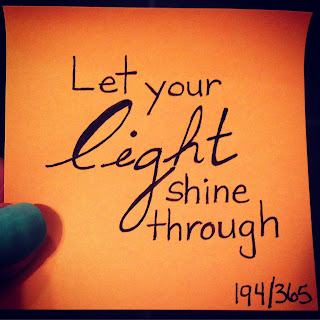 Let your
light
shine
through
194/365